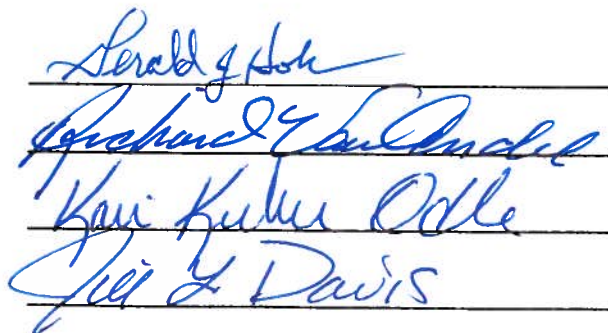 Gerald J
Richard Van Andel
Kari Odle
Jill L Davis